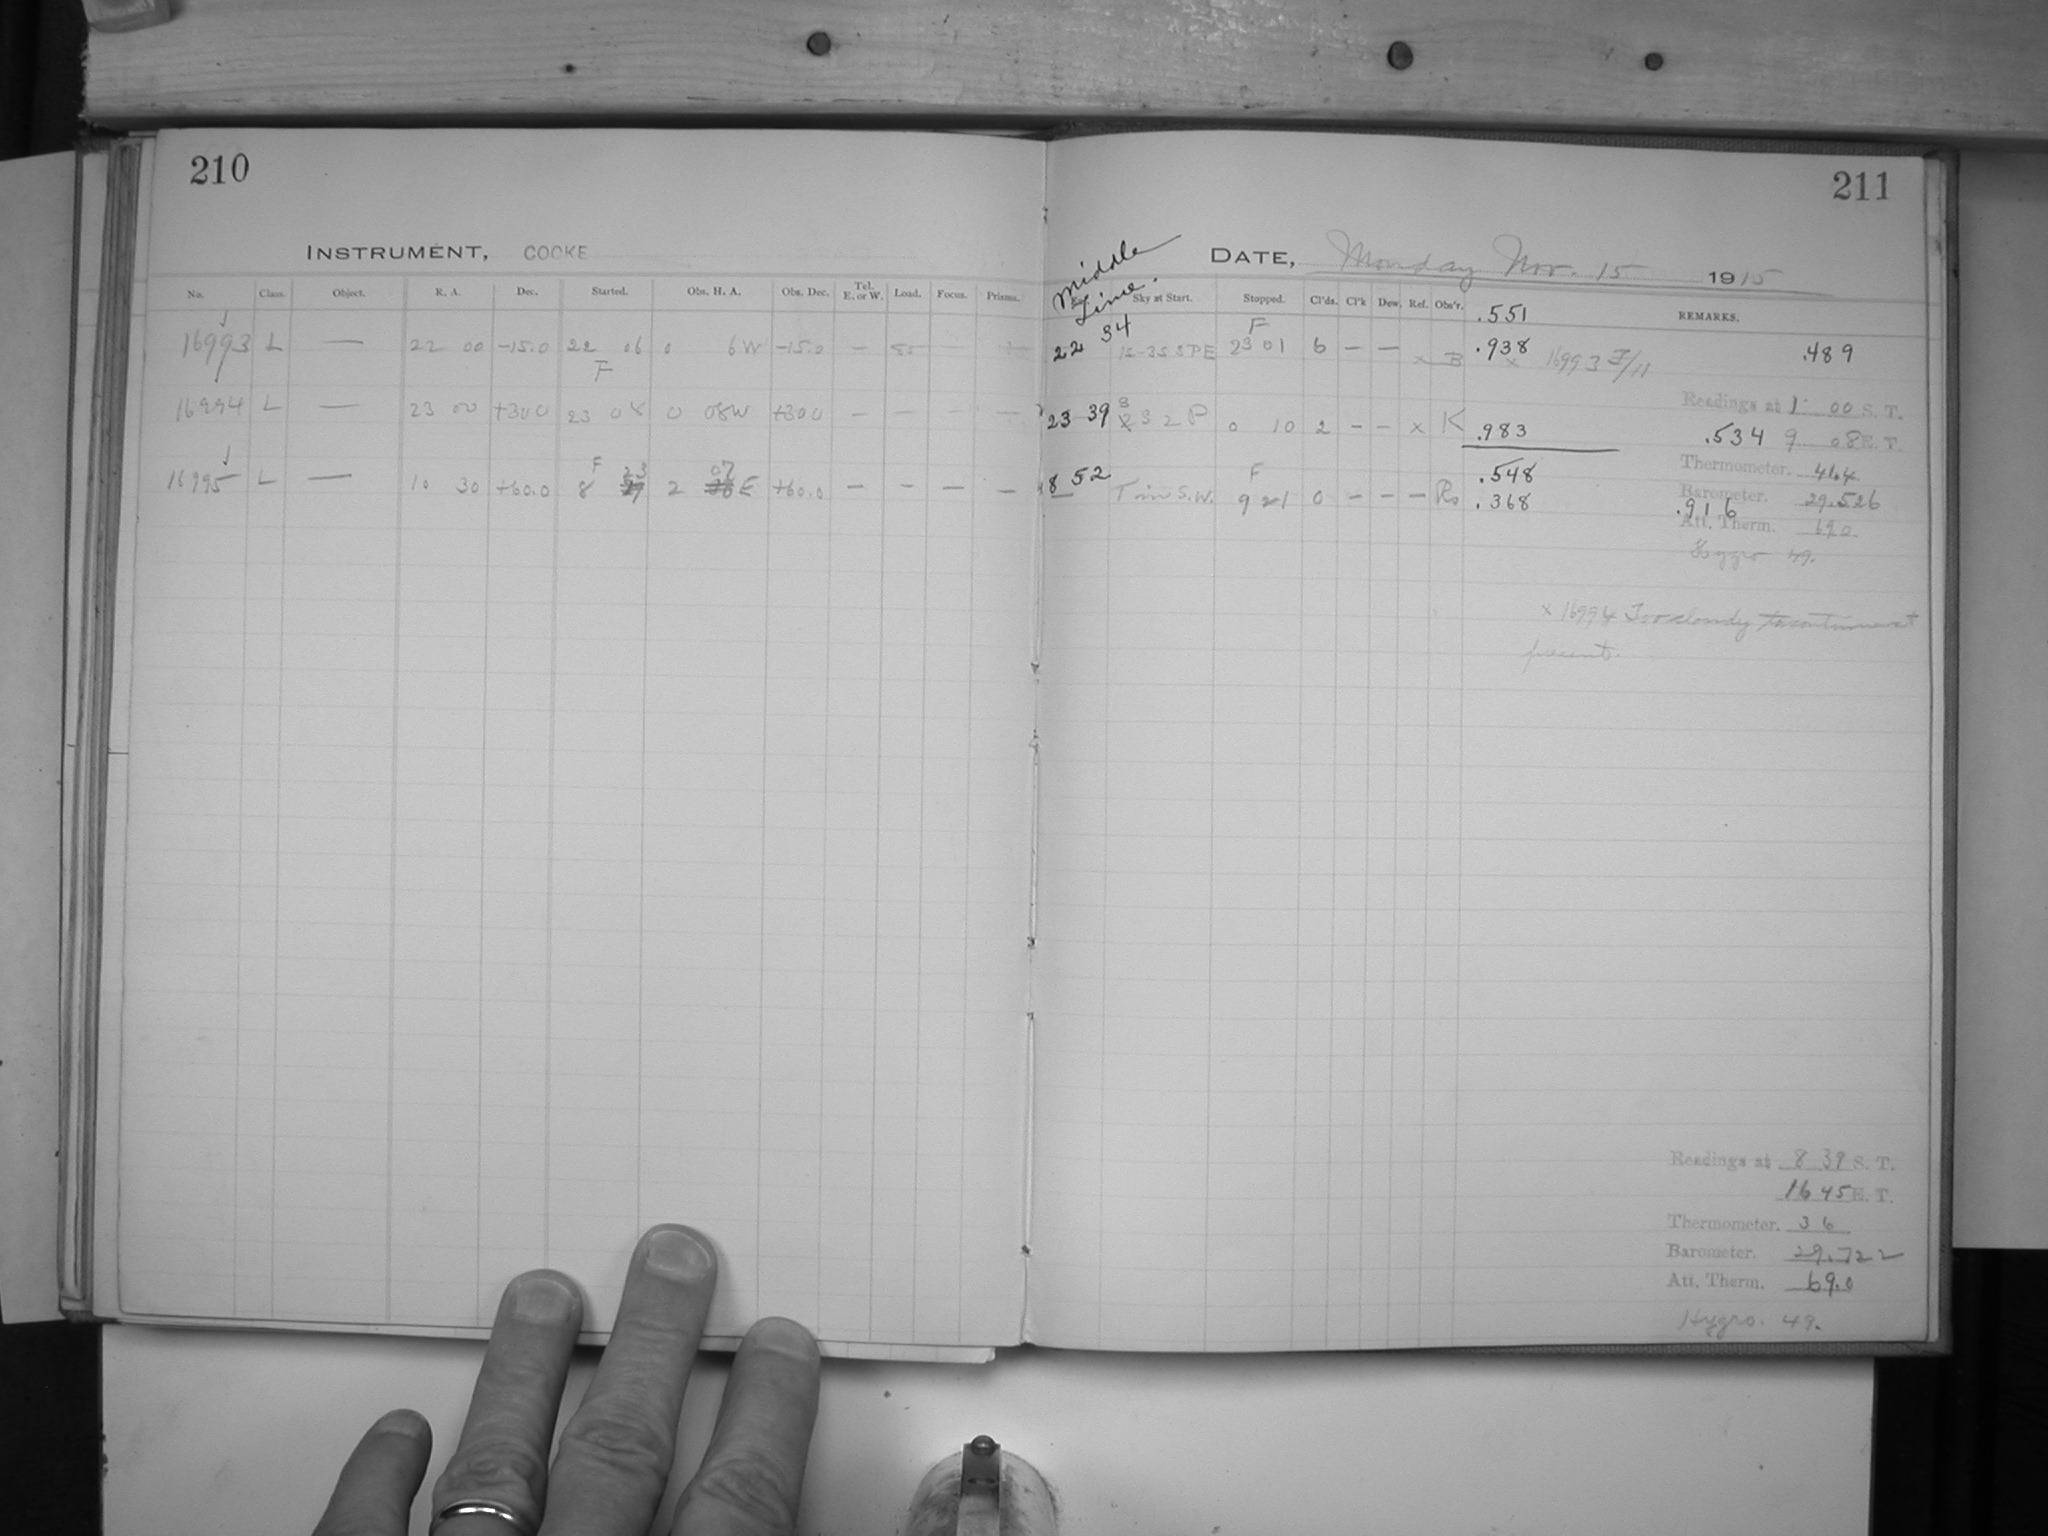 210
211
INSTRUMENT, COOKE
Middle
Time.
DATE, Monday Nov. 15 1915
No. Class. Object. R. A. Dec. Started. Obs. H. A. Obs. Dec. Tel. E. or W. Load. Focus. Prisms.
Sky at Start. Stopped. Cl'ds. Cl'k Dew. Ref. Obs'r. REMARKS.
.551
16993 L — 22 00 -15.0 22 06 0 6W -15.0 —
F
22 34 15-35 SPE F 23 01 6 — — x B .938 x 16993 F/11 .489
16994 L — 23 00 +30.0 23 08 0 08W +30.0 — — — —
23 39 3 2 P 0 10 2 — — x K .983
Readings at 1 00 S. T.
.534 9 08 E. T.
16995 L — 10 30 +60.0 F 8 23 2 07 E +60.0 — — — —
8 52 S.W. F 9 21 0 — — — Ro .548
.368 .916
Thermometer. 41.4
Barometer. 29.526
Att. Therm. 69.0
Hygro 49.
x 16994 Too cloudy to continue at
present.
Readings at 8 39 S. T.
16 45 E. T.
Thermometer. 36
Barometer. 29.722
Att. Therm. 69.0
Hygro. 49.